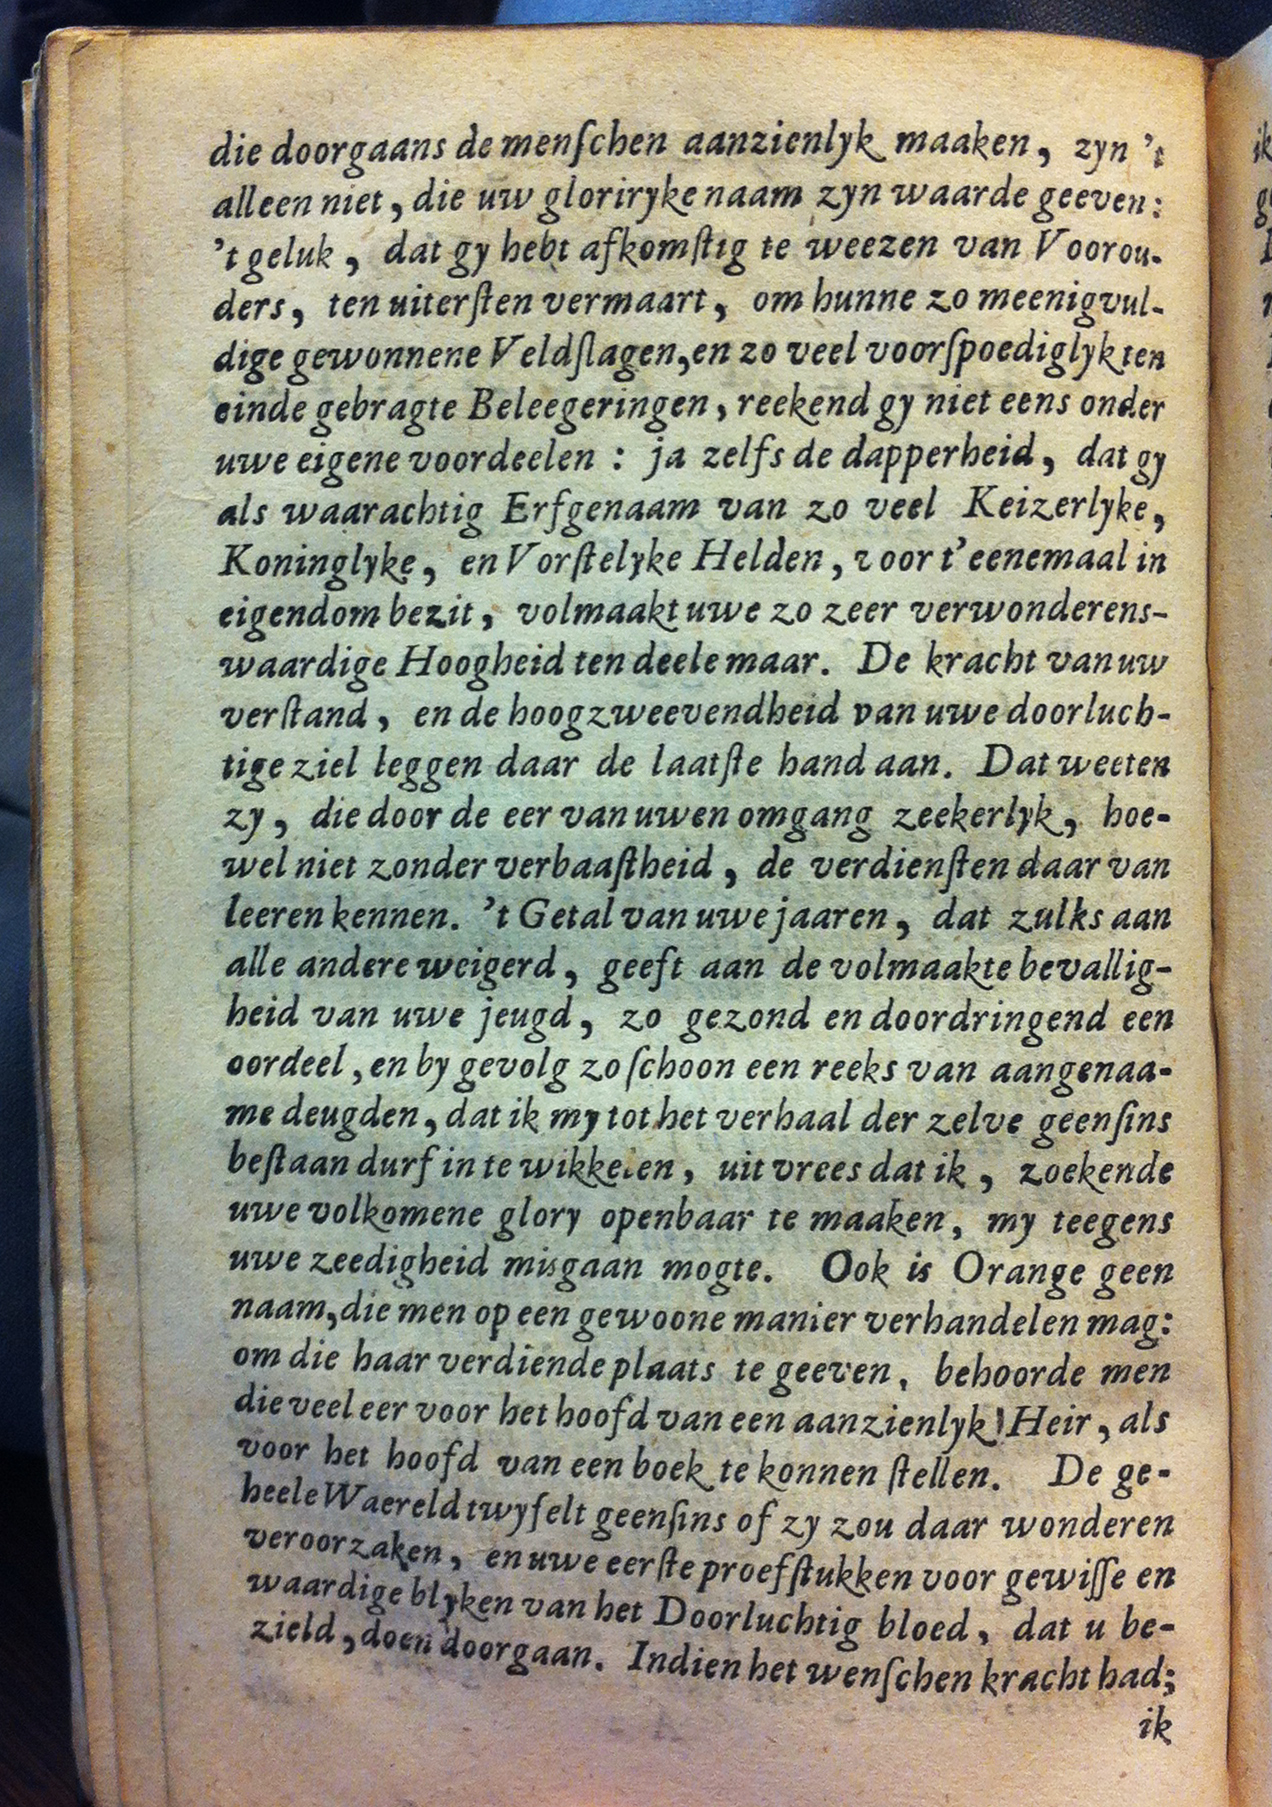 die doorgaans de menſchen aanzienlyk maaken, zyn 't
alleen niet, die uw gloriryke naam zyn waarde geeven:
't geluk, dat gy hebt afkomſtig te weezen van Voorou-
ders, ten uiterſten vermaart, om hunne zo meenigvul-
dige gewonnene Veldſlagen, en zo veel voorſpoediglyk ten
einde gebragte Beleegeringen, reekend gy niet eens onder
uwe eigene voordeelen: ja zelfs de dapperheid, dat gy
als waarachtig Erfgenaam van zo veel Keizerlyke,
Koninglyke, en Vorſtelyke Helden, voor t' eenemaal in
eigendom bezit, volmaakt uwe zo zeer verwonderens-
waardige Hoogheid ten deele maar. De kracht van uw
verſtand, en de hoogzweevendheid van uwe doorluch-
tige ziel leggen daar de laatſte hand aan. Dat weeten
zy, die door de eer van uwen omgang zeekerlyk, hoe-
wel niet zonder verbaaſtheid, de verdienſten daar van
leeren kennen. 't Getal van uwe jaaren, dat zulks aan
alle andere weigerd, geeft aan de volmaakte bevallig-
heid van uwe jeugd, zo gezond en doordringend een
oordeel, en by gevolg zo ſchoon een reeks van aangenaa-
me deugden, dat ik my tot het verhaal der zelve geenſins
beſtaan durf in te wikkelen, uit vrees dat ik, zoekende
uwe volkomene glory openbaar te maaken, my teegens
uwe zeedigheid misgaan mogte. Ook is Orange geen
naam, die men op een gewoone manier verhandelen mag:
om die haar verdiende plaats te geeven, behoorde men
die veel eer voor het hoofd van een aanzienlyk Heir, als
voor het hoofd van een boek te konnen ſtellen. De ge-
heele Waereld twyfelt geenſins of zy zou daar wonderen
veroorzaken, en uwe eerſte proefſtukken voor gewiſſe en
waardige blyken van het Doorluchtig bloed, dat u be-
zield, doen doorgaan. Indien het wenſchen kracht had;
ik